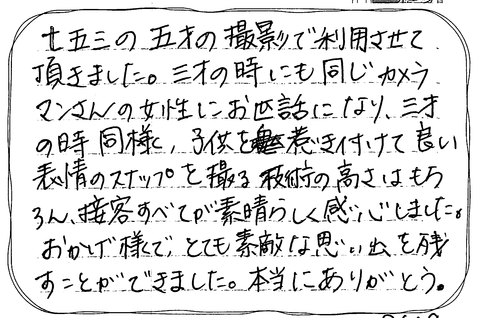 七五三の五才の撮影で利用させて
頂きました。三才の時にも同じカメラ
マンさんの女性にお世話になり、三才
の時同様に、子供を惹き付けて良い
表情のスナップを撮る技術の高さはもち
ろん、接客すべてが素晴らしく感心しました。
おかげ様で、とても素敵な思い出を残
すことができました。本当にありがとう。